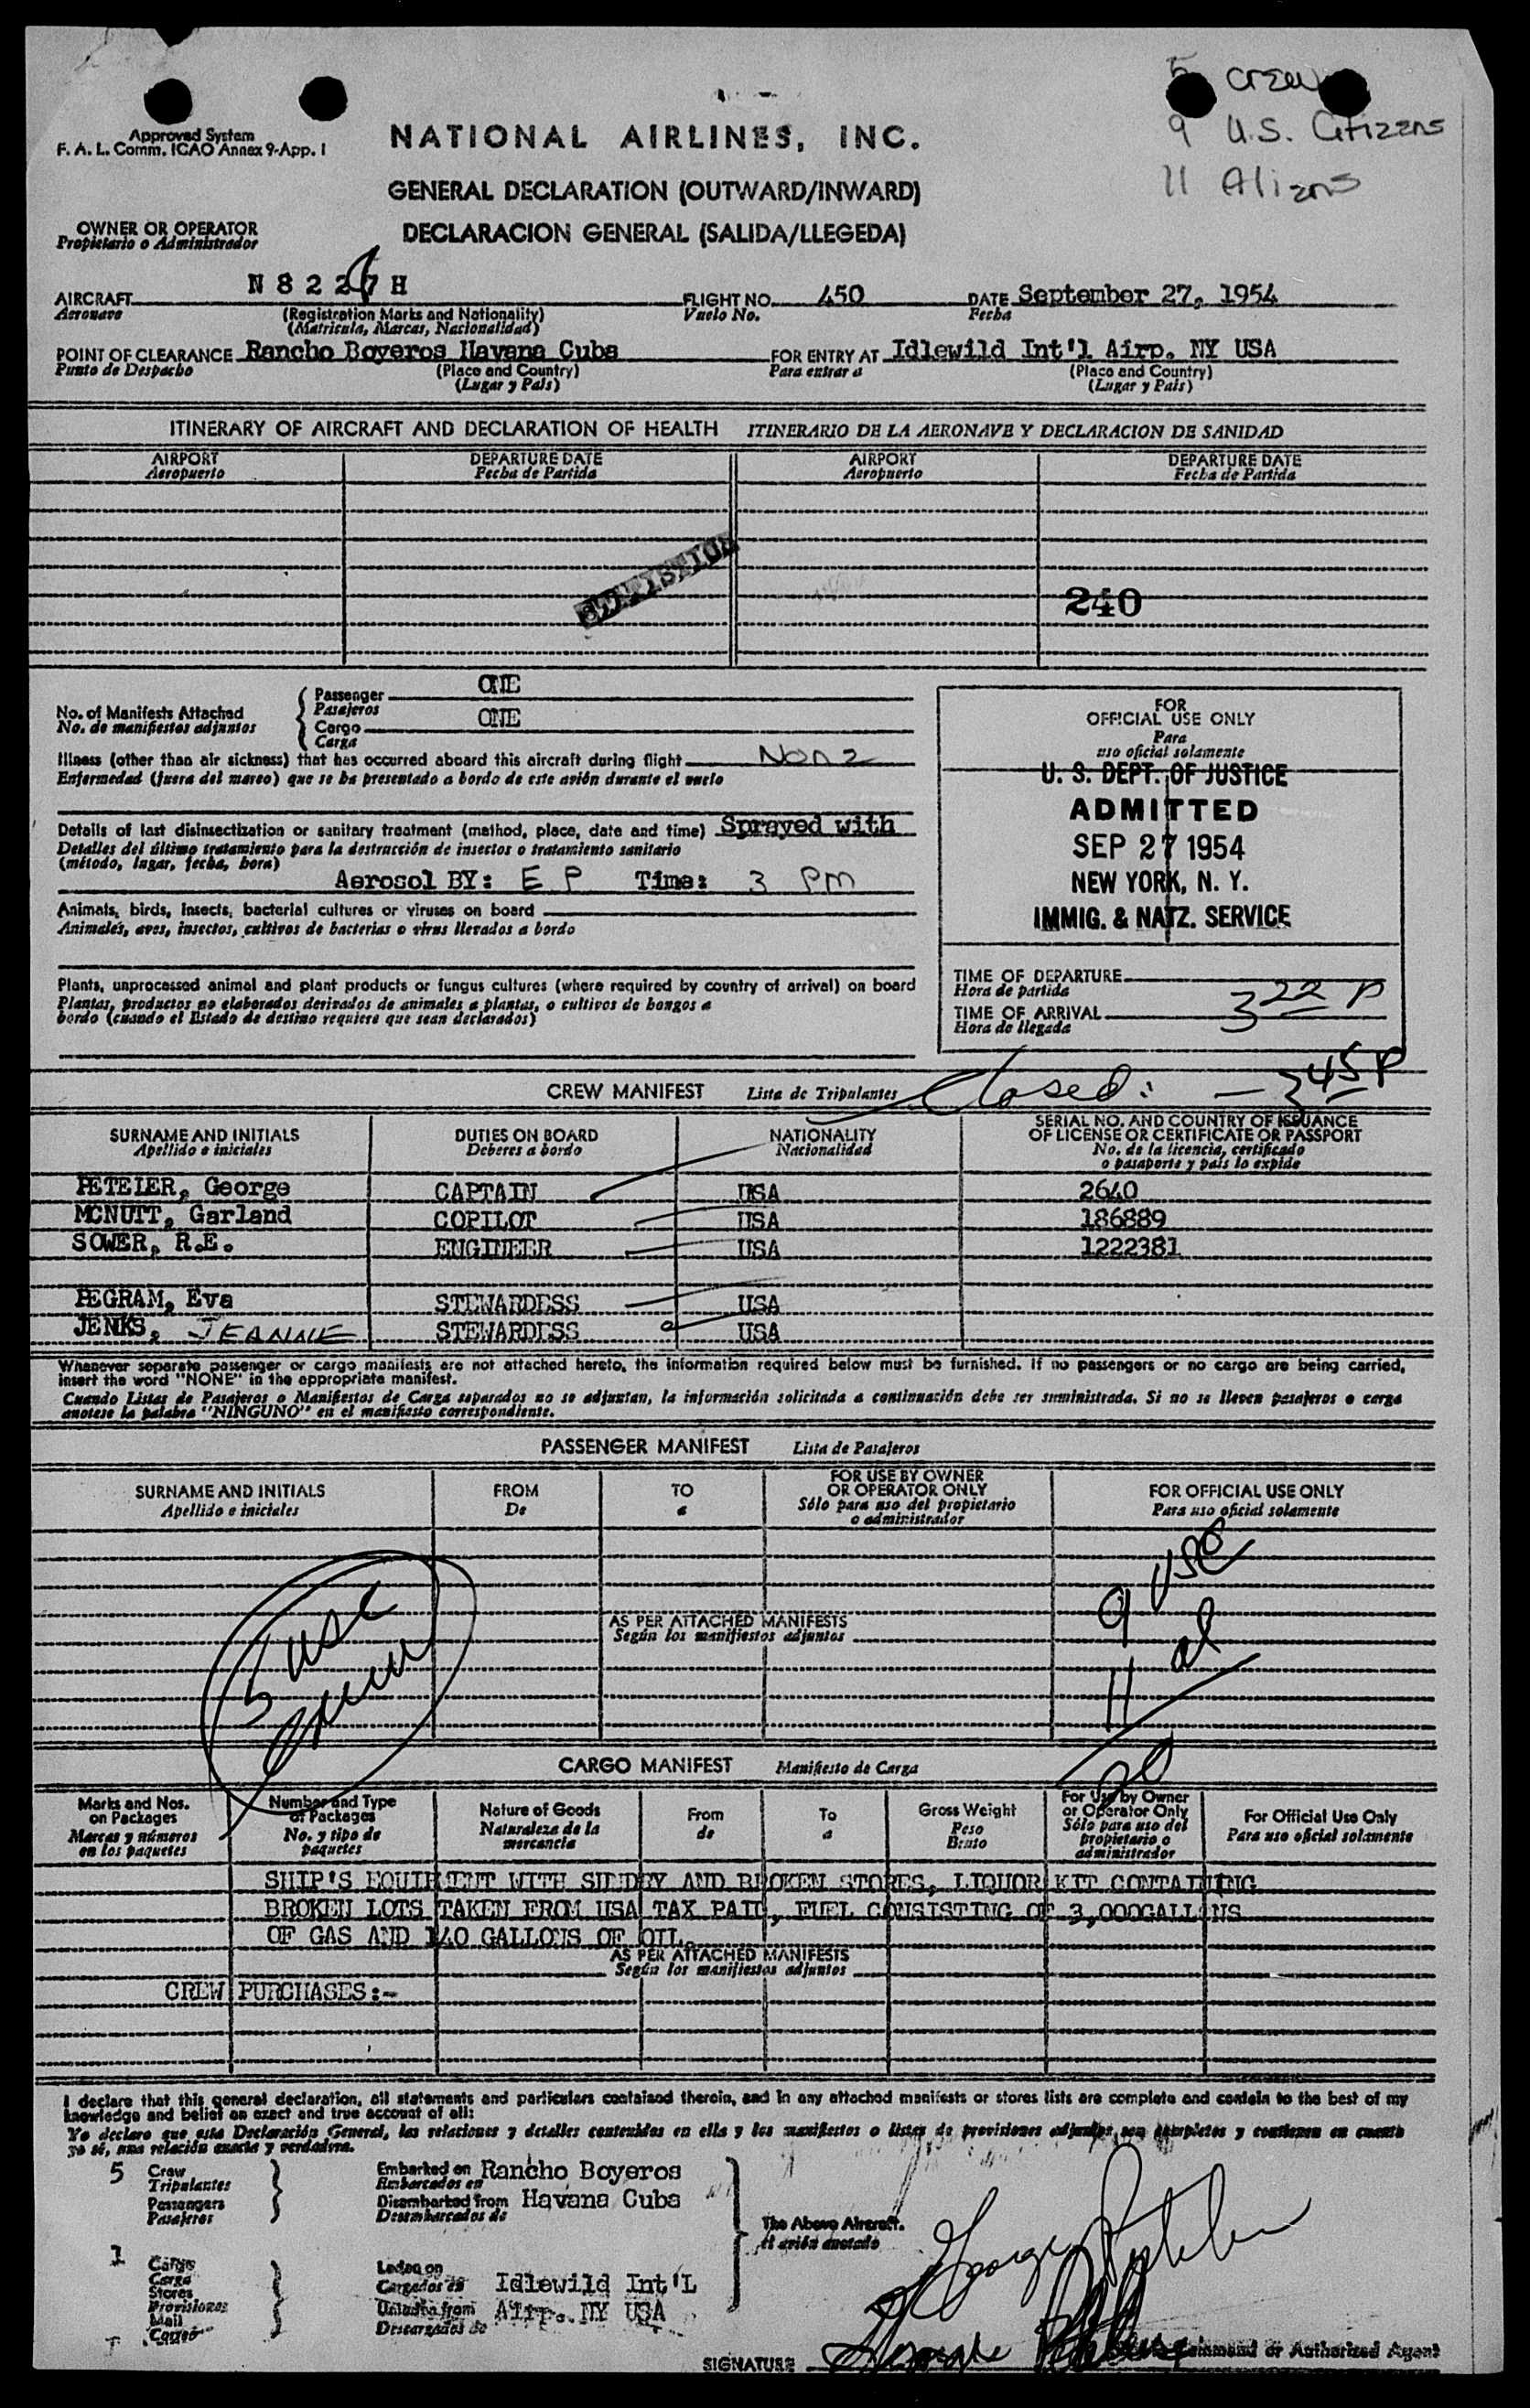 5 crew
9 U.S. Citizens
11 Aliens
Approved System
F. A. L. Comm. ICAO Annex 9-App. I
NATIONAL AIRLINES, INC.
GENERAL DECLARATION (OUTWARD/INWARD)
DECLARACION GENERAL (SALIDA/LLEGEDA)
OWNER OR OPERATOR
Propietario o Administrador
AIRCRAFT N 8 2 2 H FLIGHT NO. 450 DATE September 27, 1954
Aeronave (Registration Marks and Nationality) Vuelo No. Fecha
(Matricula, Marcas, Nacionalidad)
POINT OF CLEARANCE Rancho Boyeros Havana Cuba FOR ENTRY AT Idlewild Int'l Airp. NY USA
Punto de Despacho (Place and Country) Para entrar a (Place and Country)
(Lugar y Pais) (Lugar y Pais)
ITINERARY OF AIRCRAFT AND DECLARATION OF HEALTH ITINERARIO DE LA AERONAVE Y DECLARACION DE SANIDAD
AIRPORT DEPARTURE DATE AIRPORT DEPARTURE DATE
Aeropuerto Fecha de Partida Aeropuerto Fecha de Partida
240
No. of Manifests Attached Passenger ONE
No. de manifiestos adjuntos Pasajeros
Cargo ONE
Carga
Illness (other than air sickness) that has occurred aboard this aircraft during flight None
Enfermedad (fuera del mareo) que se ha presentado a bordo de este avión durante el vuelo
Details of last disinsectization or sanitary treatment (method, place, date and time) Sprayed with
Detalles del último tratamiento para la destrucción de insectos o tratamiento sanitario
(método, lugar, fecha, hora)
Aerosol BY: E P Time: 3 PM
Animals, birds, insects, bacterial cultures or viruses on board
Animales, aves, insectos, cultivos de bacterias o virus llevados a bordo
Plants, unprocessed animal and plant products or fungus cultures (where required by country of arrival) on board
Plantas, productos no elaborados derivados de animales a plantas, o cultivos de hongos a
bordo (cuando el Estado de destino requiere que sean declarados)
FOR
OFFICIAL USE ONLY
Para
uso oficial solamente
U. S. DEPT. OF JUSTICE
ADMITTED
SEP 27 1954
NEW YORK, N. Y.
IMMIG. & NATZ. SERVICE
TIME OF DEPARTURE
Hora de partida
TIME OF ARRIVAL 3 22 P
Hora de llegada
Closed: - 3 45 P
CREW MANIFEST Lista de Tripulantes
SURNAME AND INITIALS DUTIES ON BOARD NATIONALITY SERIAL NO. AND COUNTRY OF ISSUANCE
Apellido e iniciales Deberes a bordo Nacionalidad OF LICENSE OR CERTIFICATE OR PASSPORT
No. de la licencia, certificado
o pasaporte y pais lo expide
PETELER, George CAPTAIN USA 2640
MCNUTT, Garland COPILOT USA 186889
SOWER, R.E. ENGINEER USA 1222381
PEGRAM, Eva STEWARDESS USA
JENKS, JEANNIE STEWARDESS USA
Whenever separate passenger or cargo manifests are not attached hereto, the information required below must be furnished. If no passengers or no cargo are being carried,
insert the word "NONE" in the appropriate manifest.
Cuando Listas de Pasajeros o Manifiestos de Carga separados no se adjuntan, la información solicitada a continuación debe ser suministrada. Si no se lleven pasajeros o carga
anotese la palabra "NINGUNO" en el manifiesto correspondiente.
PASSENGER MANIFEST Lista de Pasajeros
SURNAME AND INITIALS FROM TO FOR USE BY OWNER FOR OFFICIAL USE ONLY
Apellido e iniciales De a OR OPERATOR ONLY Para uso oficial solamente
Sólo para uso del propietario
o administrador
5 usc 9 usc
AS PER ATTACHED MANIFESTS
Según los manifiestos adjuntos
11 al
20
CARGO MANIFEST Manifiesto de Carga
Marks and Nos. Number and Type Nature of Goods From To Gross Weight For Use by Owner For Official Use Only
on Packages of Packages Naturaleza de la de a Peso or Operator Only Para uso oficial solamente
Marcas y números No. y tipo de mercancia Bruto Sólo para uso del
en los paquetes paquetes propietario o
administrador
SHIP'S EQUIPMENT WITH SUNDRY AND BROKEN STORES, LIQUOR KIT CONTAINING
BROKEN LOTS TAKEN FROM USA TAX PAID, FUEL CONSISTING OF 3,000GALLONS
OF GAS AND 140 GALLONS OF OIL.
AS PER ATTACHED MANIFESTS
Según los manifiestos adjuntos
CREW PURCHASES:-
I declare that this general declaration, all statements and particulars contained therein, and in any attached manifests or stores lists are complete and contain to the best of my
knowledge and belief an exact and true account of all:
Yo declaro que esta Declaración General, las relaciones y detalles contenidos en ella y los manifiestos o listas de provisiones adjuntos, son completos y contienen en cuanto
yo sé, una relación exacta y verdadera.
5 Crew Embarked on Rancho Boyeros
Tripulantes Embarcados en
Passengers Disembarked from Havana Cuba
Pasajeros Desembarcados de
The Above Aircraft.
El avión anotado
1 Cargo Laden on
Carga Cargados en Idlewild Int'L
Stores
Provisiones Unladen from Airp. NY USA
Mail Descargados de
Correo
SIGNATURE George Command or Authorized Agent